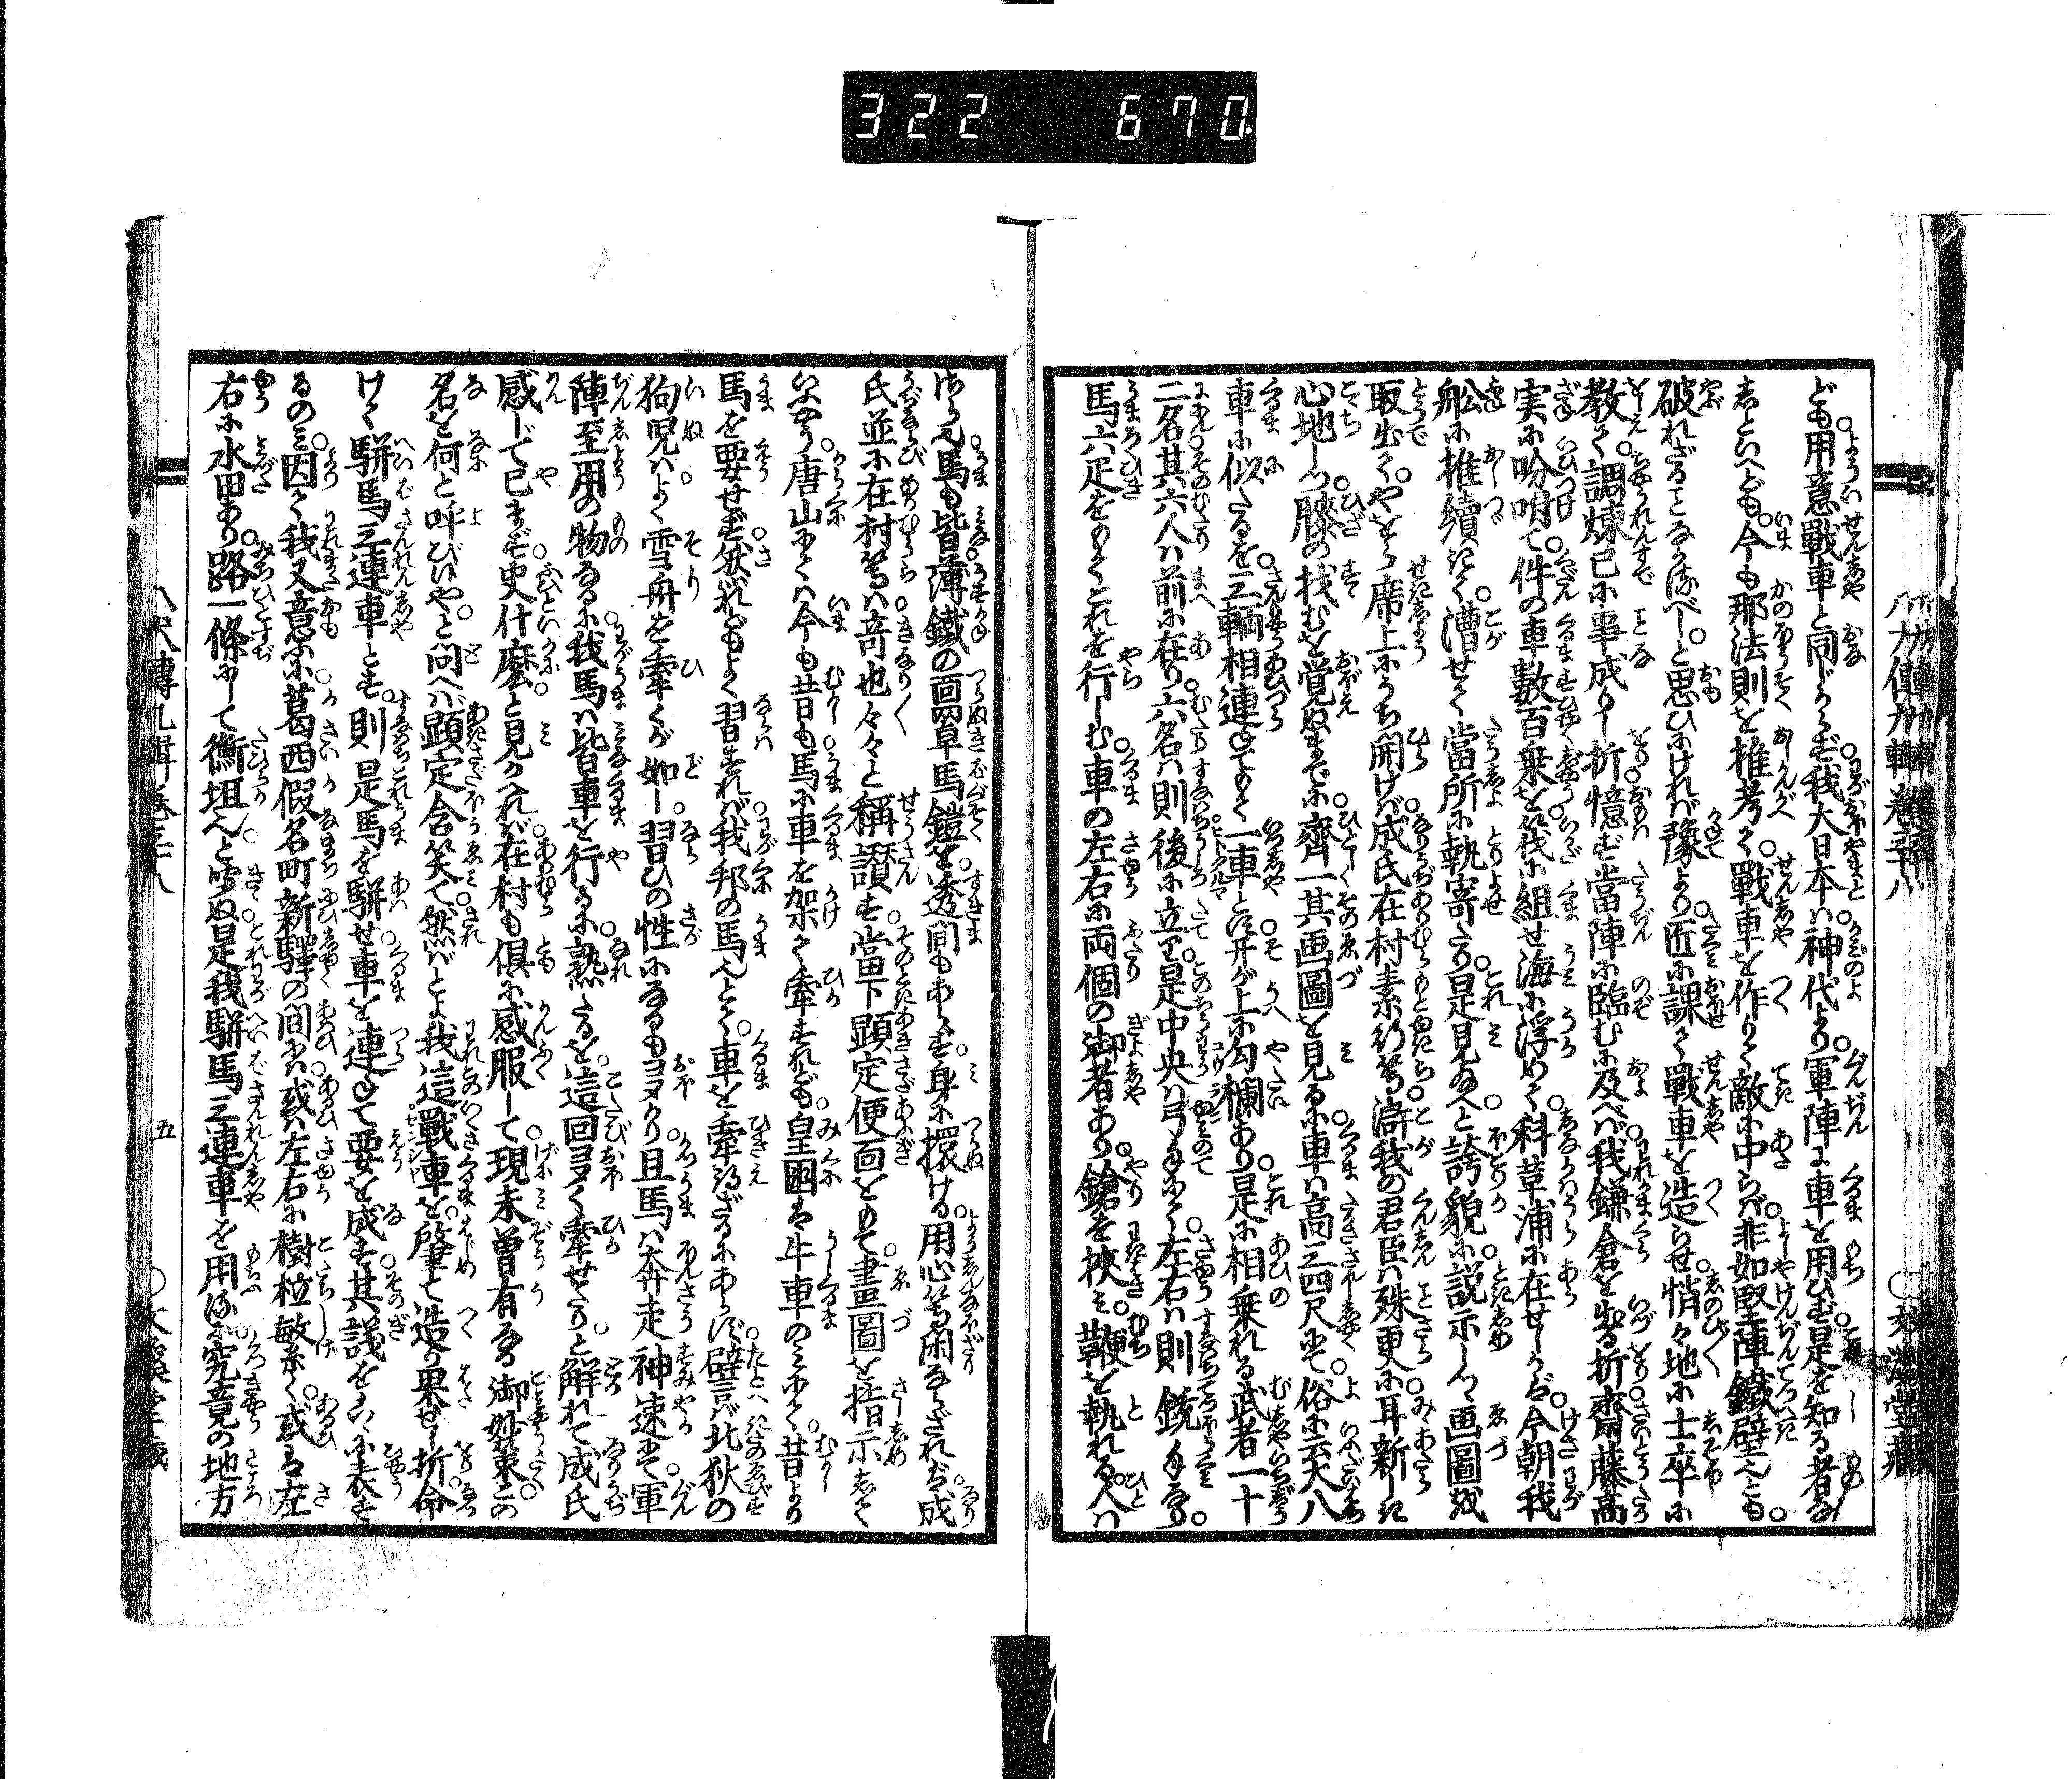 322 670
ども用意戰車と同じからず我大日本ハ神代より軍陣に車を用ひず是を知る者な
しといへども今も那法則を推考て戰車を作りて敵に中らバ非如堅陣鐵壁也とも
破れざることなかるべしと思ひにければ豫より匠に課て戰車を造らせ悄々地に士卒に
教て調煉已に事成りし折憶ず當陣に臨むに及べバ我鎌倉を出る折齋藤高
実に吩咐て件の車數百乗を筏に組せ海に浮めて科革浦に在せしかバ今朝我
舩に推續きて漕せて當所に執寄たり是見給へと誇貌に説示しつゝ画圖を
取出てやをら席上にうち開けバ成氏在村素行等滸我の君臣ハ殊更に耳新しき
心地しつ膝の找むを覚ぬまでに齊一其画圖を見るに車ハ高三四尺にて俗に云大八
車に似たるを三輛相連ねてもて一車とす开が上に勾欄あり是に相乗れる武者一十
二名其六人ハ前に在り六名ハ則後に立り是中央ハ弓手にて左右ハ則銃手なり
馬六足をもてこれを行しむ車の左右に両個の御者あり鎗を挟み鞭を執れる人ハ
馬も皆薄鐵の面罩馬鎧を透間もあらず身に環ける用心等閑ならざれバ成
氏並に在村等ハ奇也々々と稱讃す當下顕定便面をもて畫圖を指示して
いふやう唐山にてハ今も昔も馬に車を架て牽すれども皇國は牛車のみにて昔より
馬を要せず然れどもよく習すれバ我邦の馬也とて車を牽得ざるにあらず譬バ北狄の
狗児ハよく雪舟を牽くが如し習ひの性になるも多かり且馬ハ奔走神速にて軍
陣至用の物なるに我馬ハ皆車を行るに熟たるを這回多く牽せたりと解れて成氏
感じて已まず史什麼と見かへれバ在村も倶に感服して現未曾有なる御妙策この
名を何と呼びてやと問へバ顕定含笑て然バとよ我這戰車を肇て造り果せし折命
けて駢馬三連車とす則是馬を駢せ車を連ねて要を成す其議をもて
るのみ因て我又意ふに葛西假名町新驛の間は或ハ左右に樹柆敏系く或は左
右に水田あり路一條にして衡坦也と聞ぬ是我駢馬三連車を用るに究竟の地方
八犬傳九輯巻三十八 五